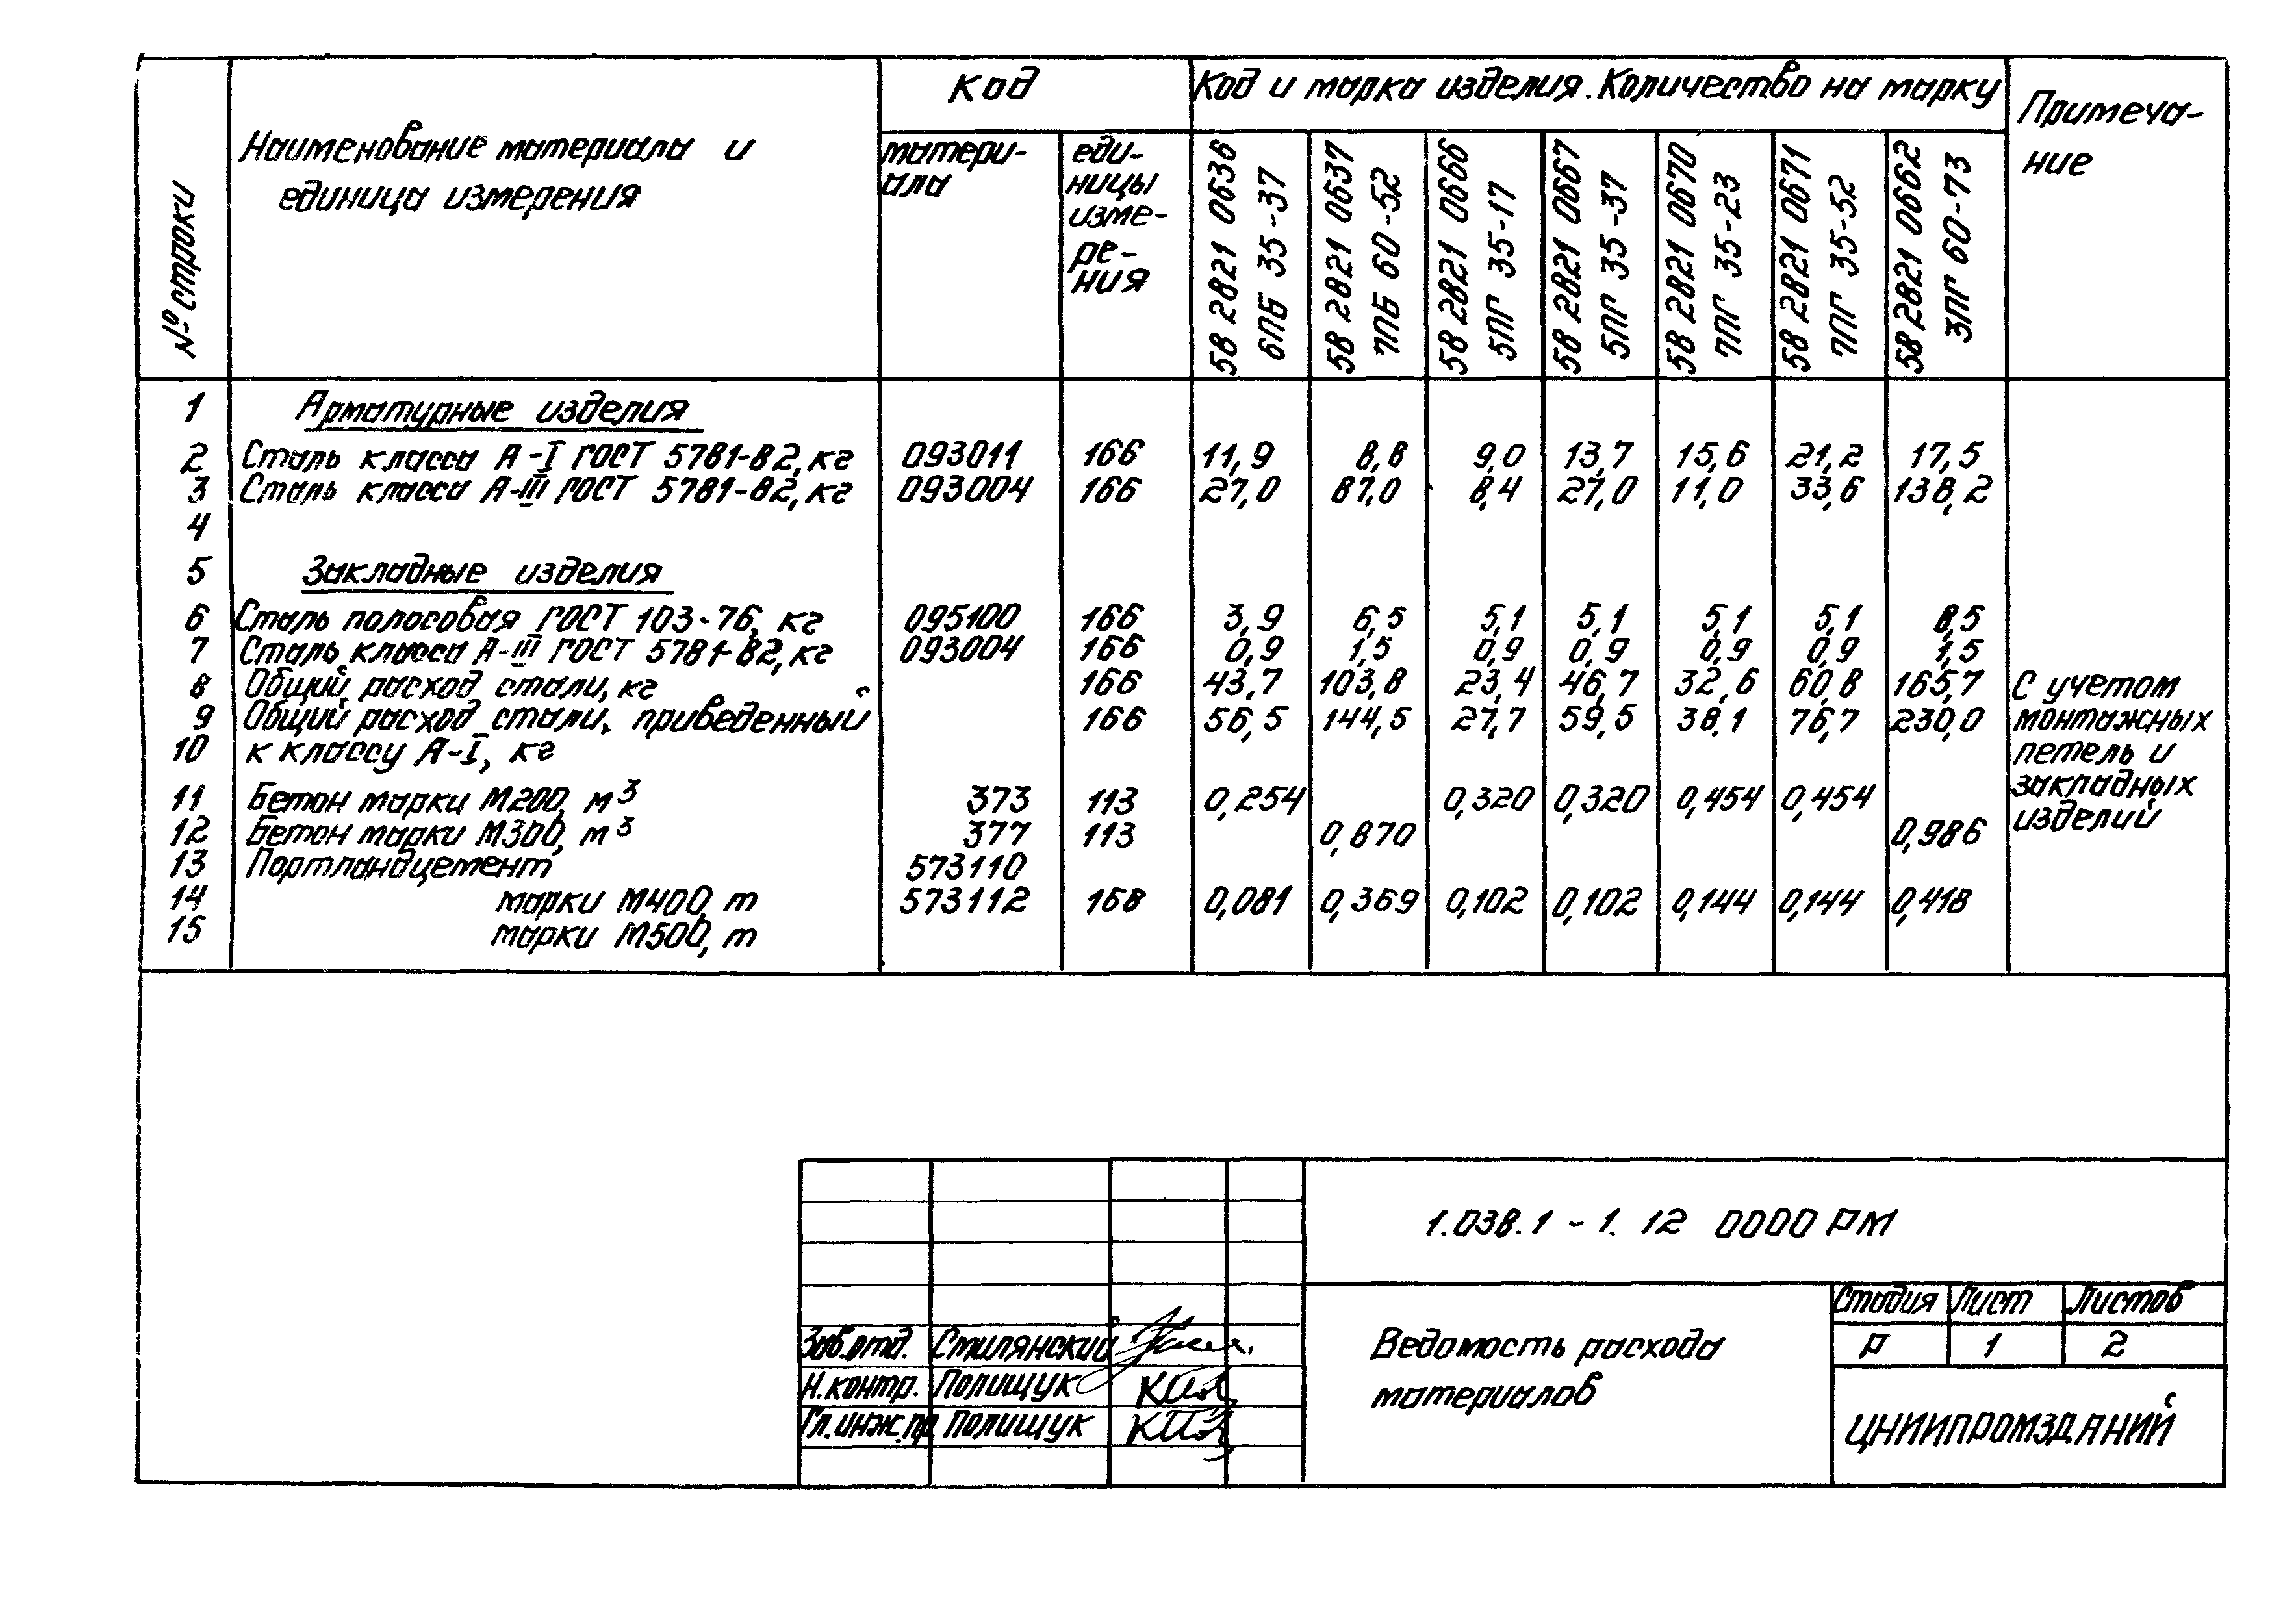 № строки
Наименование материала и
единица измерения
Код
матери-
ала
еди-
ницы
изме-
ре-
ния
Код и марка изделия. Количество на марку
58 2821 0636
6ПБ 35-37
58 2821 0637
7ПБ 60-52
58 2821 0666
5ПГ 35-17
58 2821 0667
5ПГ 35-37
58 2821 0670
7ПГ 35-23
58 2821 0671
7ПГ 35-52
58 2821 0662
3ПГ 60-73
Примеча-
ние
1 Арматурные изделия
2 Сталь класса А-I ГОСТ 5781-82, кг 093011 166 11,9 8,8 9,0 13,7 15,6 21,2 17,5
3 Сталь класса А-III ГОСТ 5781-82, кг 093004 166 27,0 87,0 8,4 27,0 11,0 33,6 138,2
4
5 Закладные изделия
6 Сталь полосовая ГОСТ 103-76, кг 095100 166 3,9 6,5 5,1 5,1 5,1 5,1 8,5
7 Сталь класса А-III ГОСТ 5781-82, кг 093004 166 0,9 1,5 0,9 0,9 0,9 0,9 1,5
8 Общий расход стали, кг 166 43,7 103,8 23,4 46,7 32,6 60,8 165,7 С учетом
9 Общий расход стали, приведенный 166 56,5 144,5 27,7 59,5 38,1 76,7 230,0 монтажных
10 к классу А-I, кг петель и
11 Бетон марки М200, м³ 373 113 0,254 0,320 0,320 0,454 0,454 закладных
12 Бетон марки М300, м³ 377 113 0,870 0,986 изделий
13 Портландцемент 573110
14 марки М400, т 573112 168 0,081 0,369 0,102 0,102 0,144 0,144 0,418
15 марки М500, т
1.038.1-1. 12 0000 РМ
Зав.отд. Стилянский
Н.контр. Полищук
Гл.инж.пр Полищук
Ведомость расхода
материалов
Стадия Лист Листов
Р 1 2
ЦНИИПРОМЗДАНИЙ